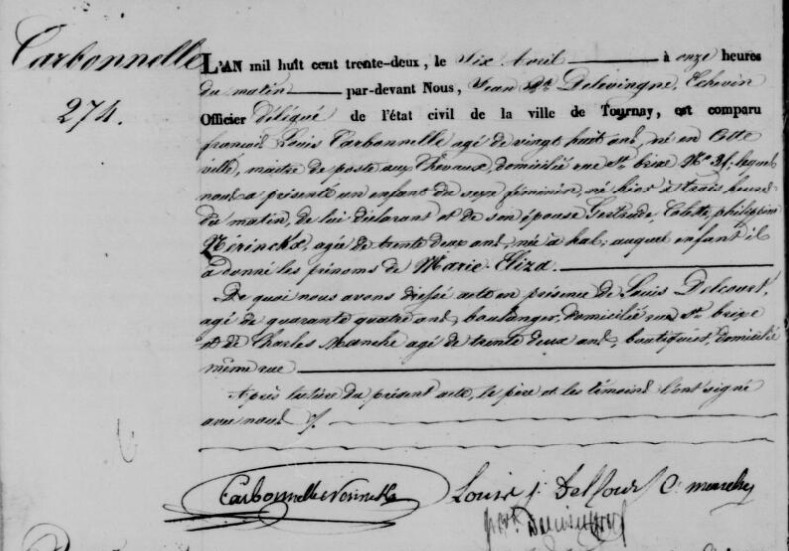 Carbonnelle
274.
L'AN mil huit cent trente-deux, le Six Avril à onze heures
du matin par-devant Nous, Jean Bte Delevingne, Echevin
Officier délégué de l'état civil de la ville de Tournay, est comparu
francois Louis Carbonnelle agé de vingt huit ans, né en Cette
ville, maitre de poste aux Chevaux, domicilié rue St. brixe No. 31, lequel
nous a présenté un enfant du sexe feminin, né hier à trois heures
du matin, de lui déclarant et de son épouse Gertrude Colette philippine
Nérinckx, agée de trente deux ans, née à hal; auquel enfant il
a donné les prénoms de Marie-Eliza.
De quoi nous avons dressé acte en présence de Louis Delcourt,
agé de quarante quatre ans, boulanger, domicilié rue St. brixe
et de Charles Manche agé de trente deux ans, boutiquier, domicilié
même rue
Après lecture du présent acte, le père et les témoins l'ont signé
avec nous /.
Carbonnelle Louis j. Delcour C.